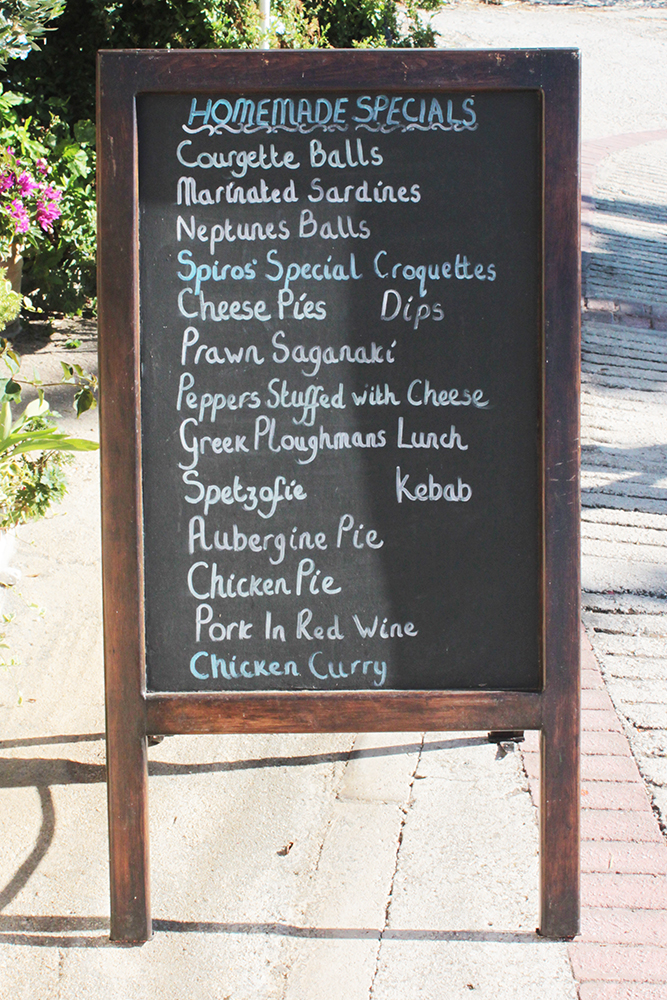 HOMEMADE SPECIALS
Courgette Balls
Marinated Sardines
Neptunes Balls
Spiros' Special Croquettes
Cheese Pies Dips
Prawn Saganaki
Peppers Stuffed with Cheese
Greek Ploughmans Lunch
Spetzofie Kebab
Aubergine Pie
Chicken Pie
Pork In Red Wine
Chicken Curry